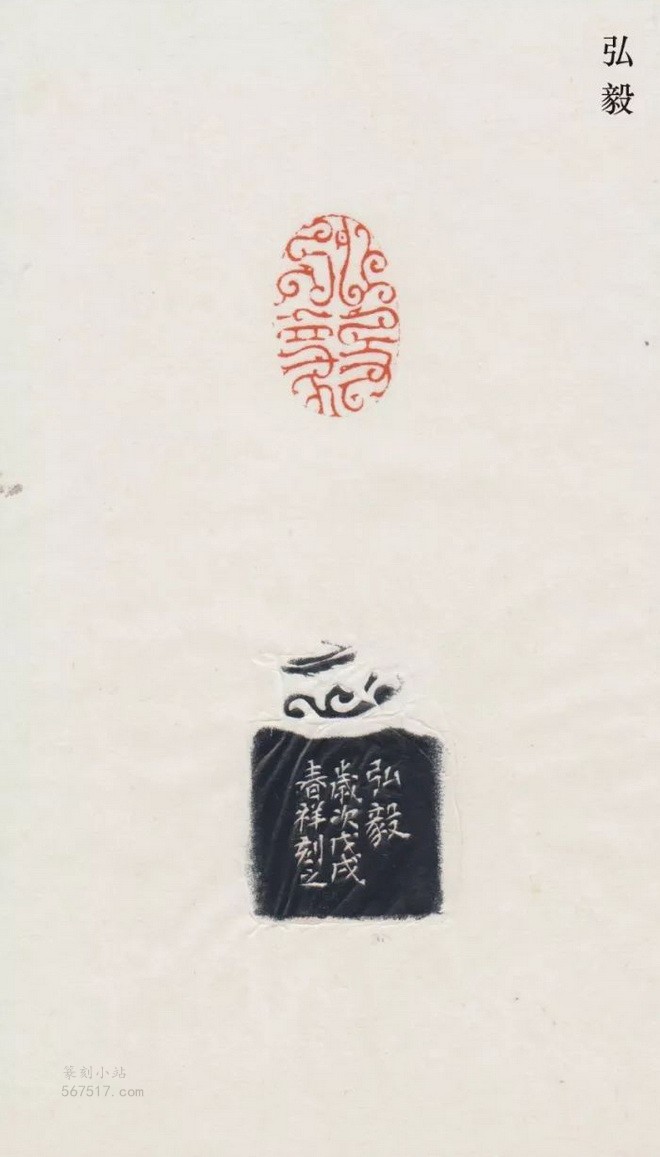 弘毅
弘毅
弘毅
歲次戊戌
春祥刻之
篆刻小站
567517.com